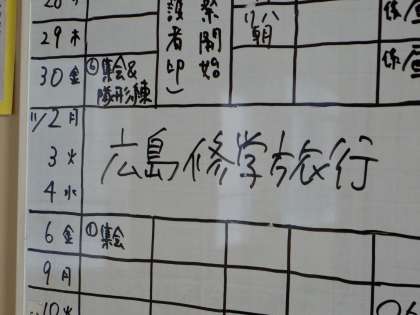 29 木
30 金 ⑥集会&
隊形練
祭開始
護者印)
朝
11/2 月
3 火
4 水
広島修学旅行
6 金 ①集会
9 月
10 火